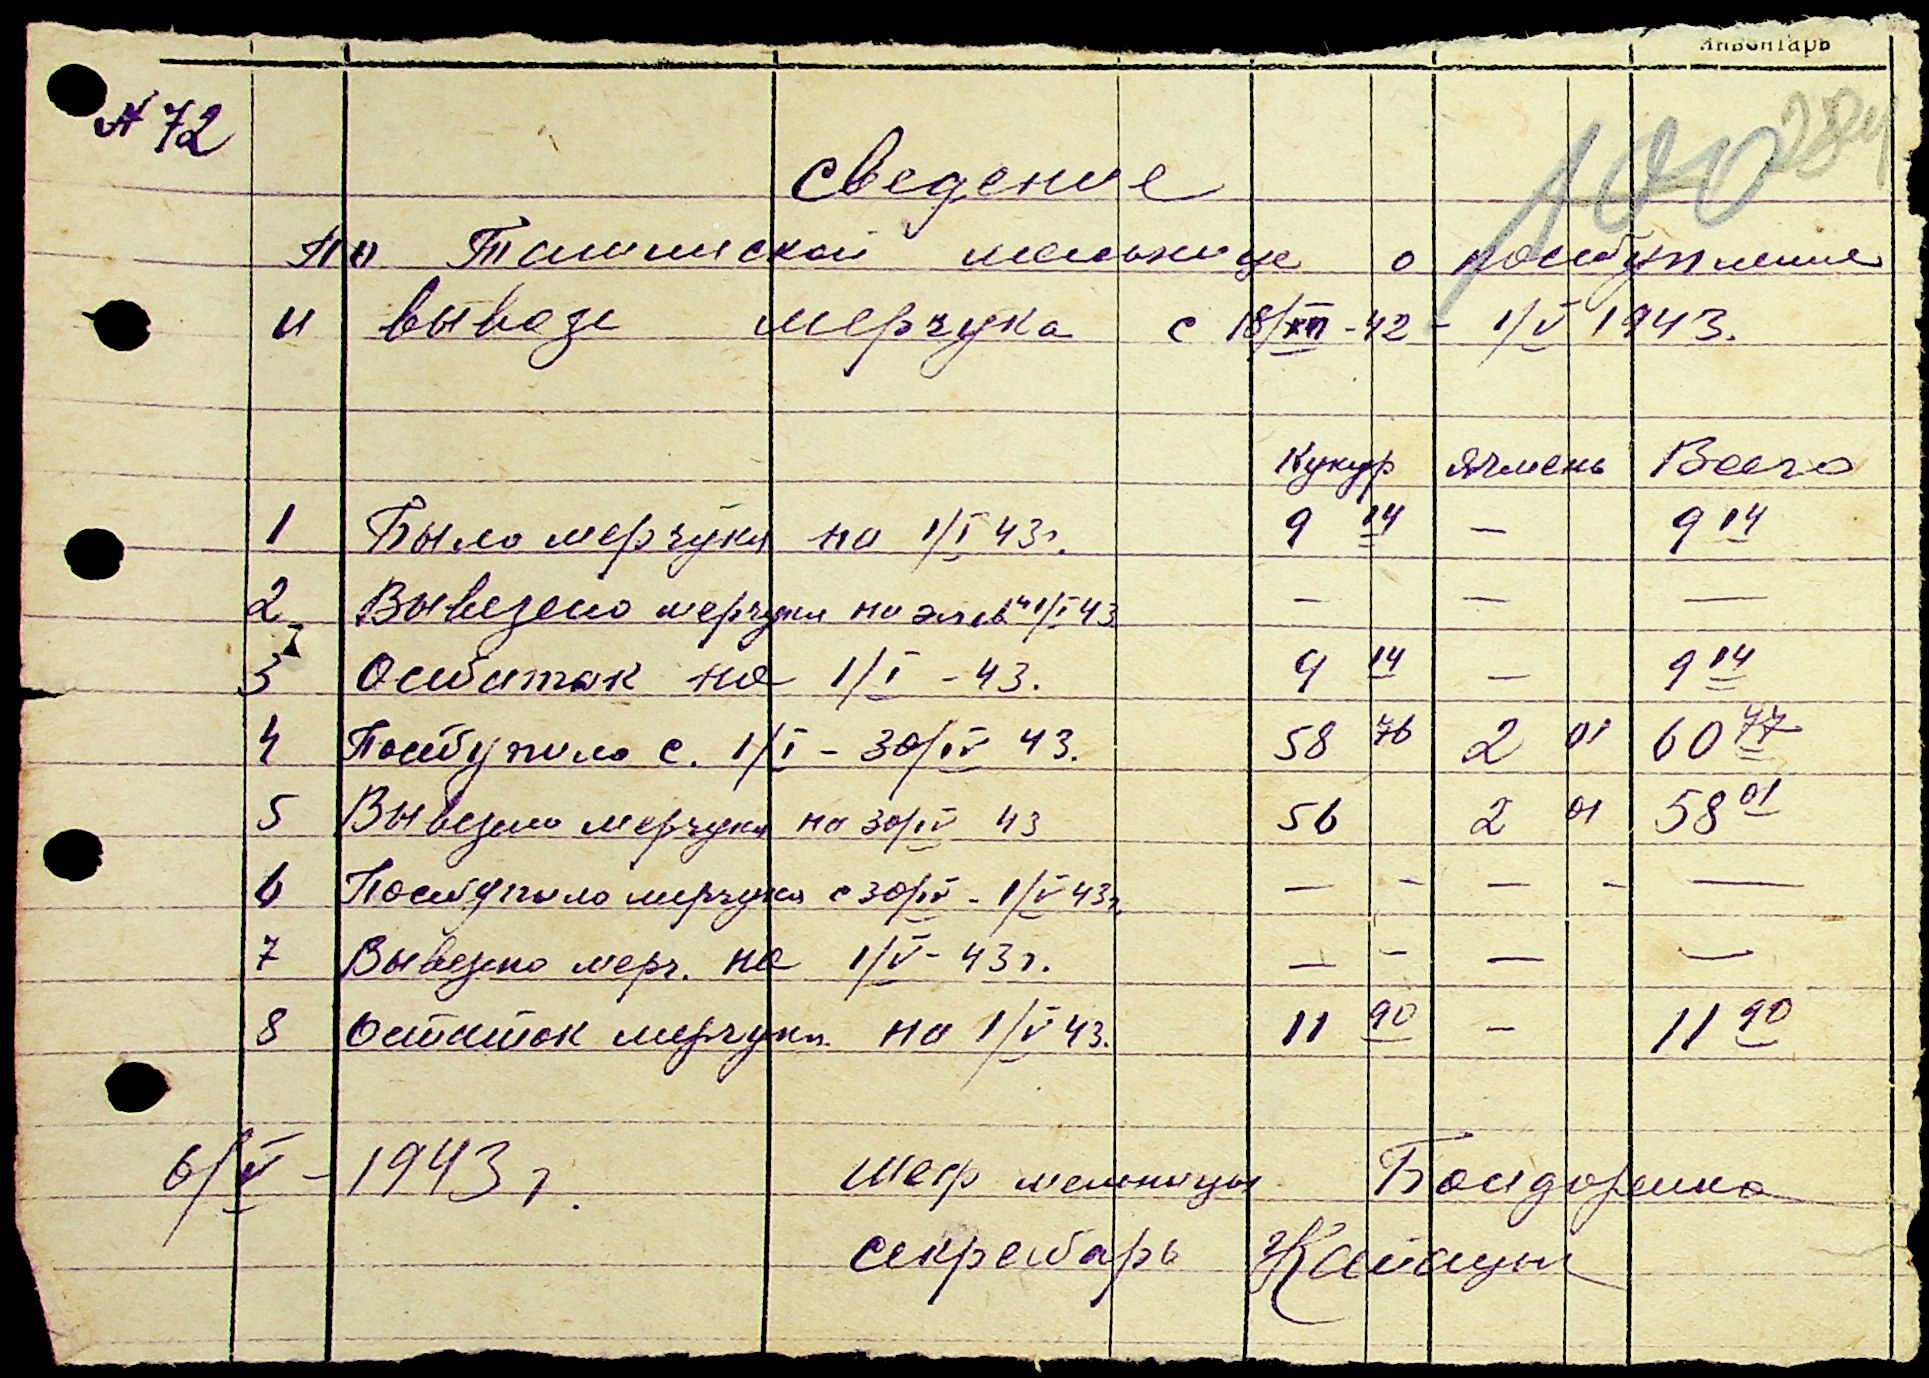 инвентарь
№ 72
100
284
Сведение
по мельнице о поступлении
и вывозе мерчука с 18/XII -42 - 1/V 1943.
Кукур Ячмень Всего
1 Было мерчука на 1/I 43г. 9 14 — 9 14
2 Вывезено мерчука на элев 1/I 43 — — —
3 Остаток на 1/I - 43. 9 14 — 9 14
4 Поступило с. 1/I - 30/IV 43. 58 76 2 01 60 77
5 Вывезено мерчука на 30/IV 43 56 2 01 58 01
6 Поступило мерчука с 30/IV - 1/V 43г. — - — - —
7 Вывезено мерч. на 1/V - 43г. — - — —
8 Остаток мерчука на 1/V 43. 11 90 — 11 90
6/V - 1943 г. Шеф мельницы Бондаренко
Секретарь